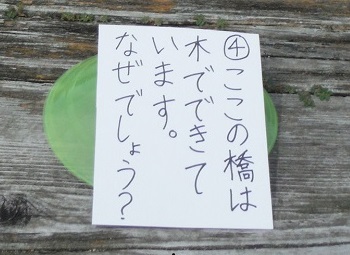 ④ここの橋は
木でできて
います。
なぜでしょう？